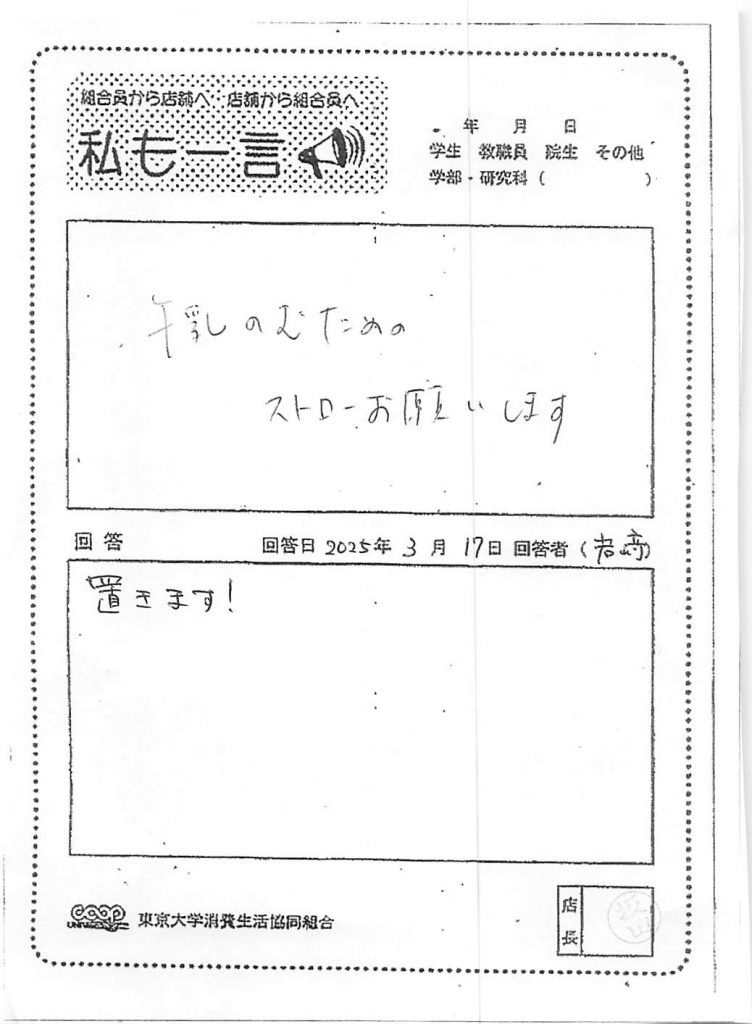 組合員から店舗へ・店舗から組合員へ
私も一言
年 月 日
学生 教職員 院生 その他
学部・研究科 ( )
牛乳のむための
ストローお願いします
回答 回答日 2025年 3月 17日 回答者 (岩崎)
置きます!
coop 東京大学消費生活協同組合
店長